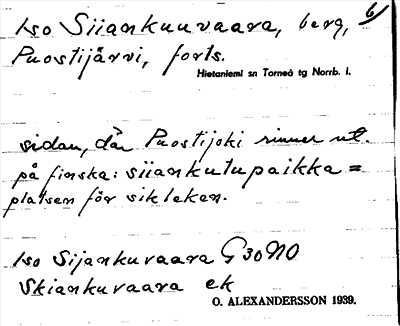 Iso Siiankuuvaara, berg, 6/
Puostijärvi, forts.
Hietaniemi sn Torneå tg Norrb. l.
sidan, där Puostijoki rinner ut.
på finska: siiankutupaikka =
platsen för sikleken.
Iso Sijankuvaara G30NO
Skiankuvaara ek
O. ALEXANDERSSON 1939.